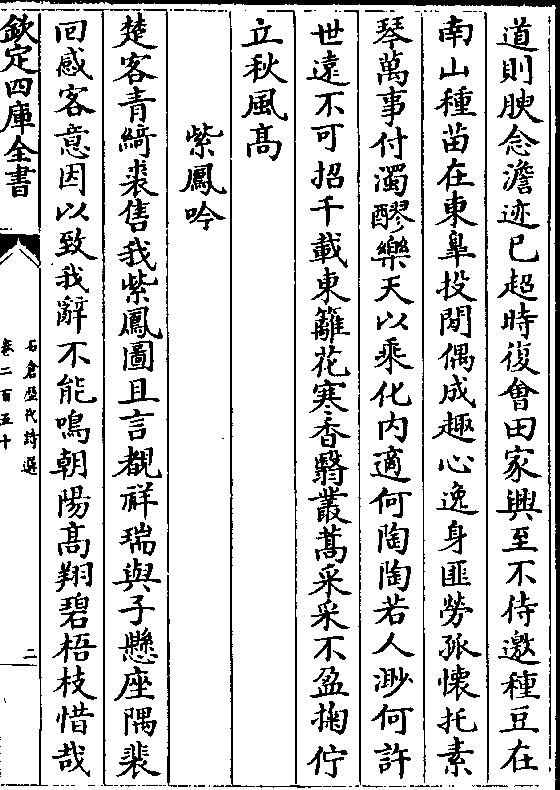 道則腴念澹迹已超時復會田家興至不待邀種豆在
南山種苗在東臯投閒偶成趣心逸身匪勞孤懷托素
琴萬事付濁醪樂天以乘化内適何陶陶若人渺何許
世遠不可招千載東籬花寒香翳叢蒿采采不盈掬佇
立秋風高
紫鳳吟
楚客青綺裘售我紫鳳圖且言覩祥瑞與子懸座隅裴
回感客意因以致我辭不能鳴朝陽高翔碧梧枝惜哉
欽定四庫全書
石倉歷代詩選
卷二百五十
二